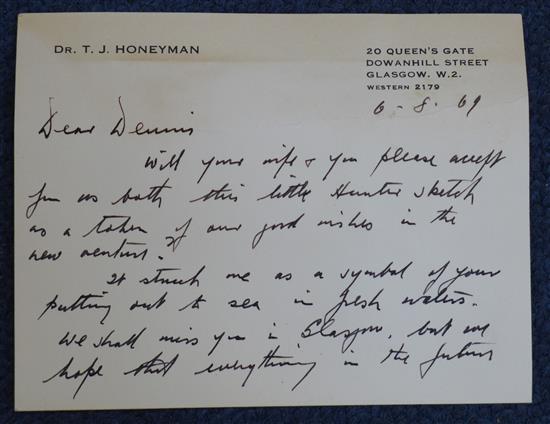 DR. T. J. HONEYMAN
20 QUEEN'S GATE
DOWANHILL STREET
GLASGOW. W.2.
WESTERN 2179
6-8.69
Dear Dennis
Will your wife & you please accept
from us both this little Hunter sketch
as a token of our good wishes in the
new venture.
It struck me as a symbol of your
putting out to sea in fresh waters.
We shall miss you in Glasgow, but we
hope that everything in the future